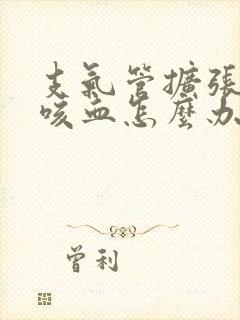 支氣管擴張
咳血怎麼办
曾利